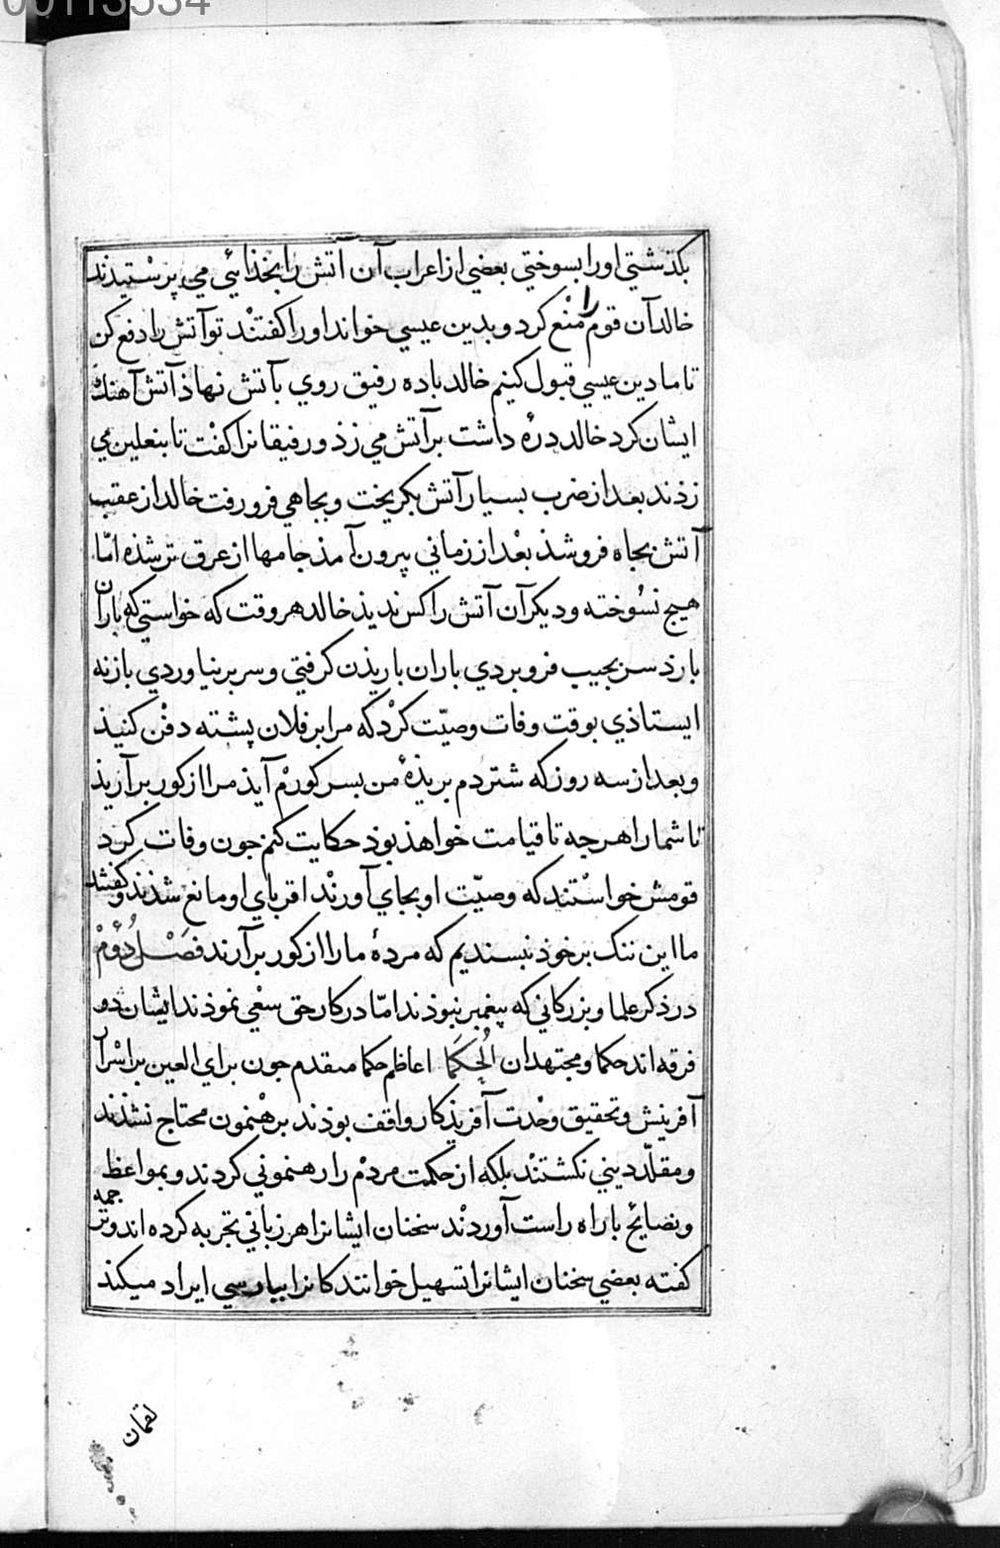 00113534
بكذشتي اورا بسوختي بعضي از اعراب آن آتش را بخذائي مي پرستيذند
خالد آن قوم را منع كرد و بدين عيسي خواند اورا كفتند تو آتش را دفع كن
تا ما دين عيسي قبول كنيم خالد با ده رفيق روي بآتش نهاذ آتش آهنك
ايشان كرد خالد درهٔ داشت بر آتش مي زذ و رفيقانرا كفت تا بنعلين مي
زذند بعد از ضرب بسيار آتش بكريخت و بجاهي فرو رفت خالد از عقب
آتش بجاه فرو شذ بعد از زماني بيرون آمذ جامها از عرق تر شذه امّا
هيج نسوخته و ديكر آن آتش را كس نديذ خالد هر وقت كه خواستي كه باران
بارذ سر بجيب فرو بردي باران باريذن كرفتي و سر بر نياوردي باز نه
ايستاذي بوقت وفات وصيّت كرد كه مرا بر فلان پشته دفن كنيذ
و بعد از سه روز كه شتر دم بريذهٔ من بسر كورم آيذ مرا از كور بر آريذ
تا شما را هرجه تا قيامت خواهذ بوذ حكايت كنم جون وفات كرد
قومش خواستند كه وصيّت او بجاي آورند اقرباي او مانع شذند و كفتند
ما اين ننك بر خوذ نپسنديم كه مردهٔ ما را از كور بر آرند فصل دُوُم
در ذكر علما و بزركاني كه پيغمبر نبوذند امّا در كار حق سعي نموذند ايشان دو
فرقه اند حكما و مجتهدان الُحكَما اعاظم حكما متقدم جون براي العين بر اسرار
آفرينش و تحقيق وحدت آفريذكار واقف بوذند برهنمون محتاج نشذند
و مقلّد ديني نكشتند بلكه از حكمت مردم را رهنموني كردند و بمواعظ
و نصايح با راه راست آوردند سخنان ايشانرا هر زباني تجربه كرده اند و ترجمه
كفته بعضي سخنان ايشانرا تسهيل خوانندكانرا بپارسي ايراد ميكند
لقمان